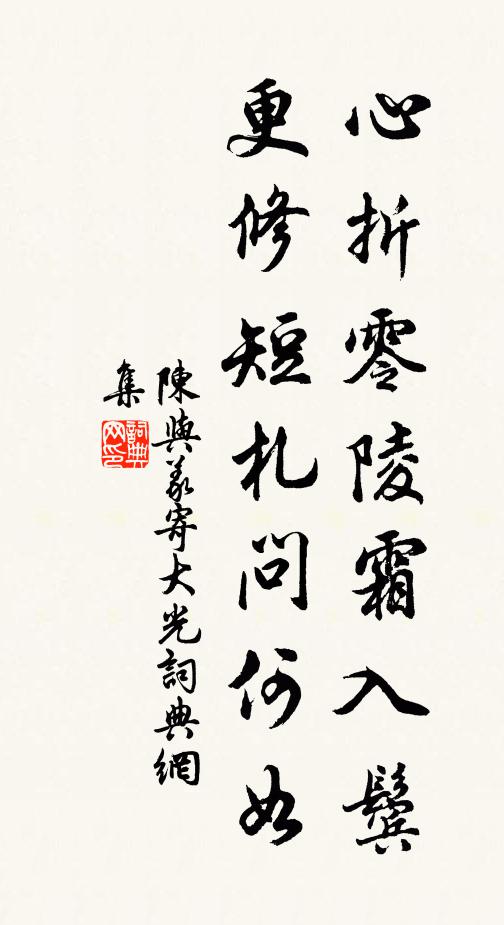 心折零陵霜入鬢
更修短札問何如
陳與義寄大光詞典網
集
詞典
网印